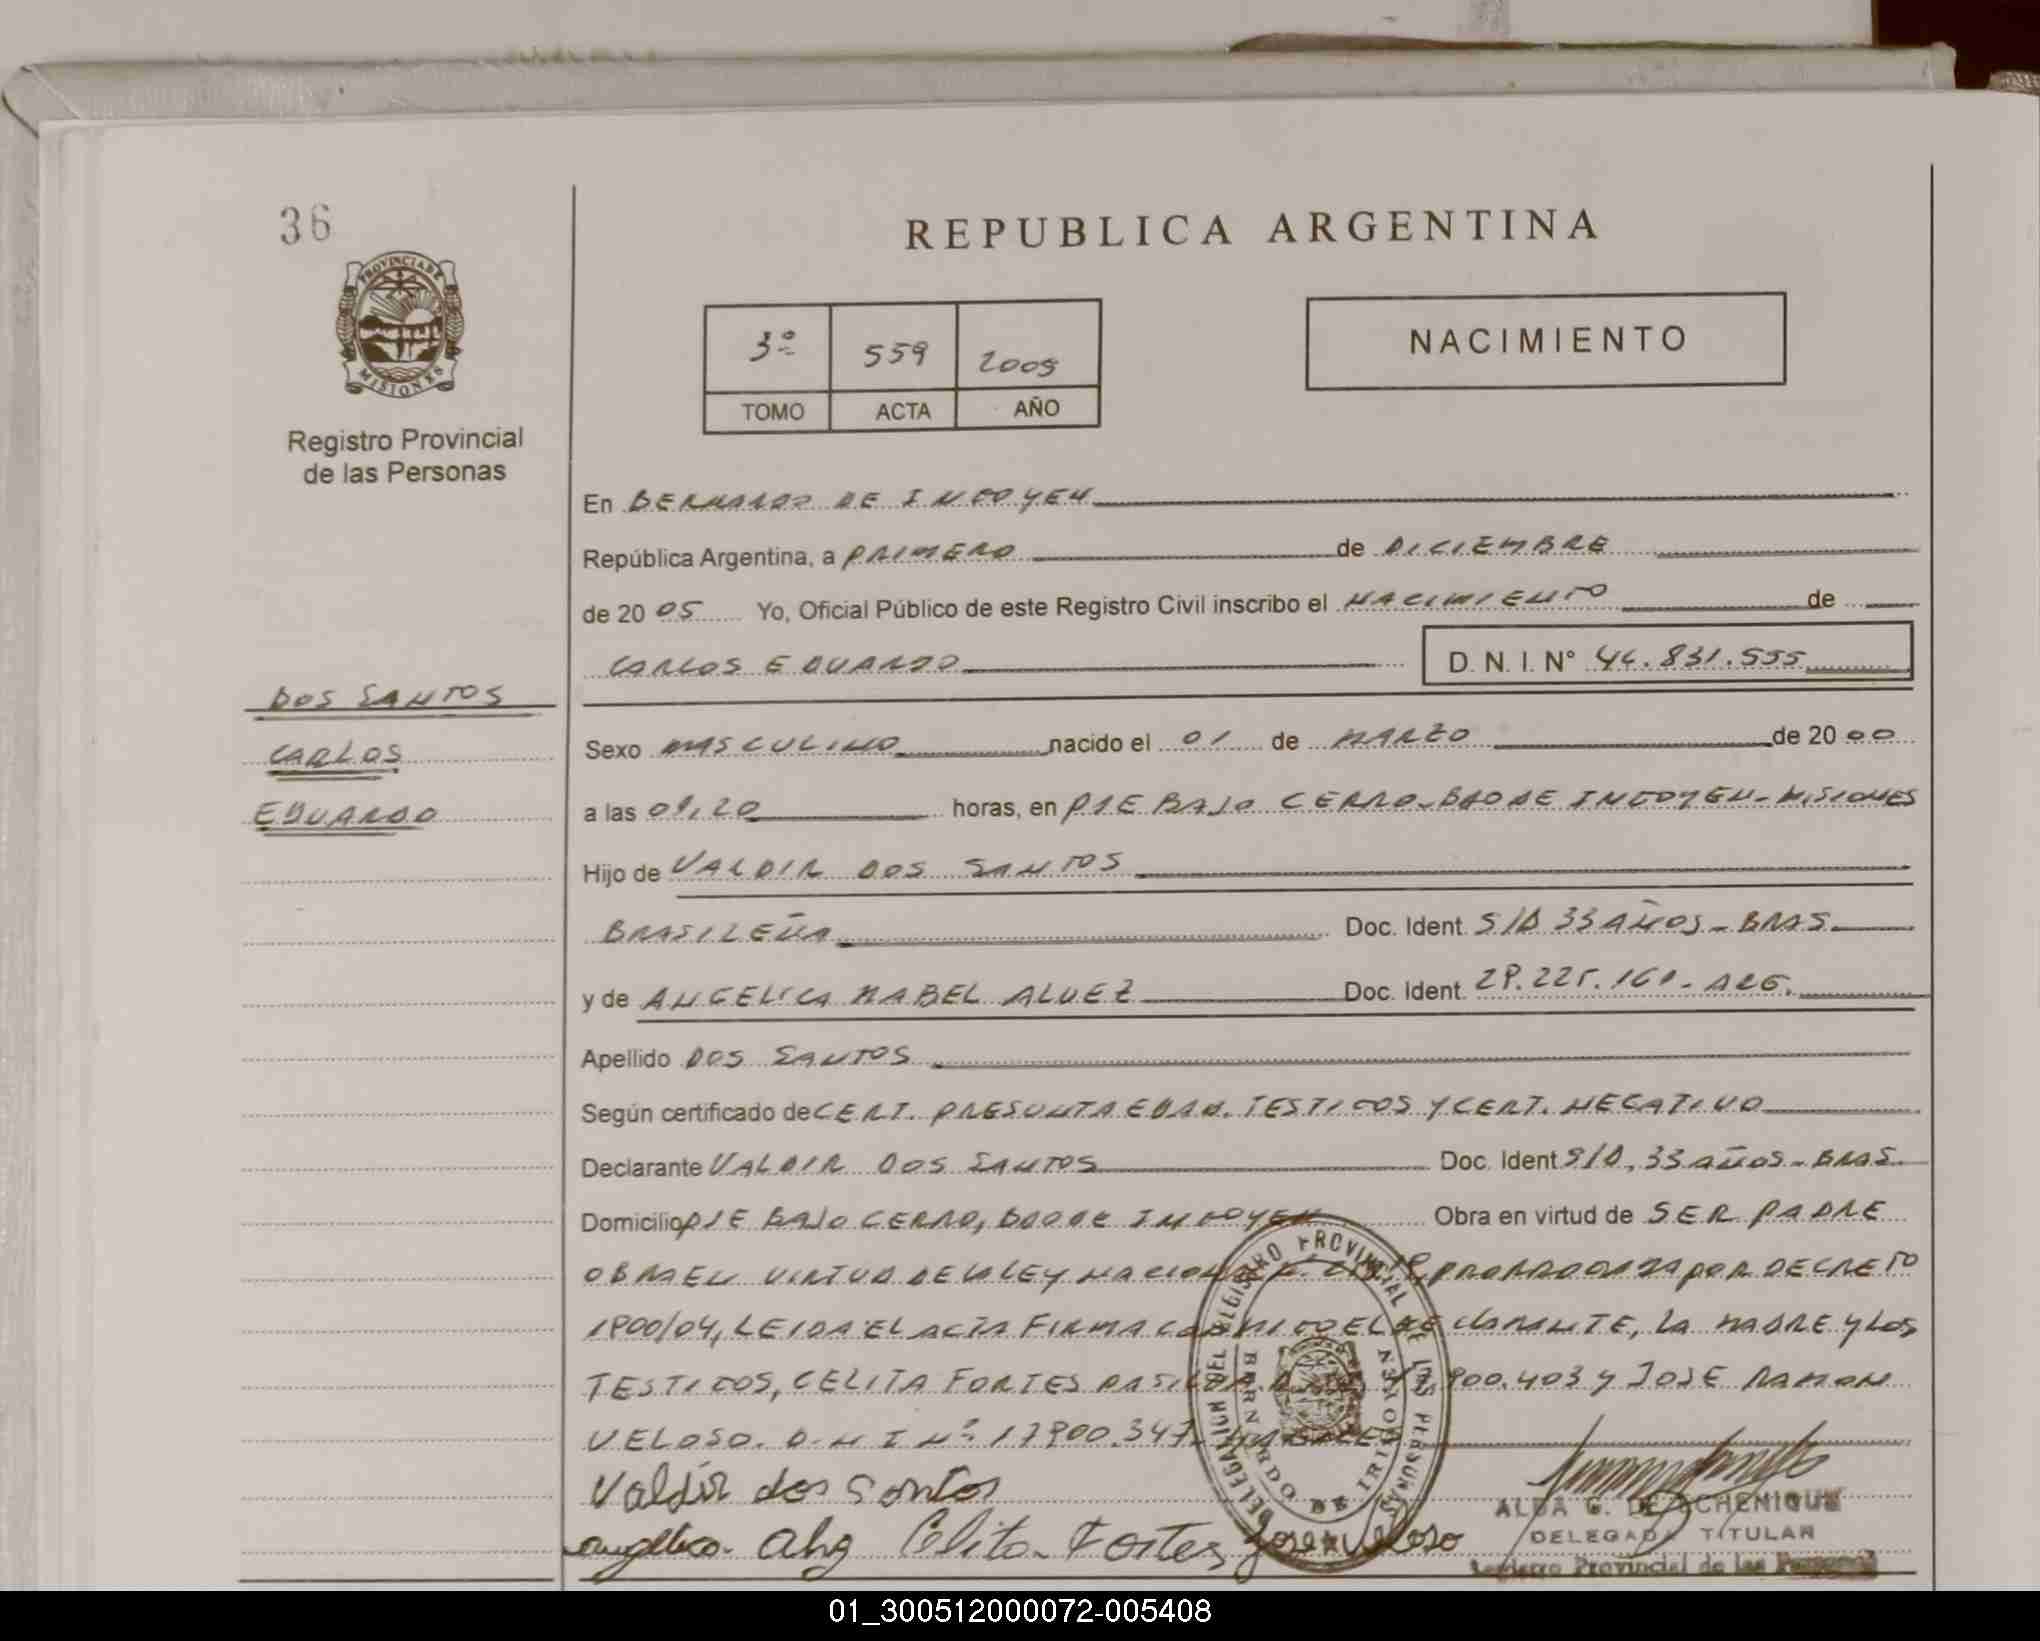 36
REPUBLICA ARGENTINA
PROVINCIA DE
MISIONES
Registro Provincial
de las Personas
3º 559 2005
TOMO ACTA AÑO
NACIMIENTO
En BERNARDO DE IRIGOYEN
República Argentina, a PRIMERO de DICIEMBRE
de 20 05 Yo, Oficial Público de este Registro Civil inscribo el NACIMIENTO de
CARLOS EDUARDO D. N. I. N° 831.555
DOS SANTOS
CARLOS
EDUARDO
Sexo MASCULINO nacido el 01 de MARZO de 20 00
a las 09,20 horas, en PJE BAJO CERRO-BDO DE IRIGOYEN-MISIONES
Hijo de VALDIR DOS SANTOS
BRASILEÑA Doc. Ident. S/D 33 AÑOS - BRAS.
y de ANGELICA MABEL ALVEZ Doc. Ident. - ARG.
Apellido DOS SANTOS
Según certificado de CERT. PRESUNTA EDAD. TESTIGOS Y CERT. NEGATIVO
Declarante VALDIR DOS SANTOS Doc. Ident S/D, 33 AÑOS - BRAS.
Domicilio PJE BAJO CERRO, BDO DE IRIGOYEN Obra en virtud de SER PADRE
OBRA EN VIRTUD DE LA LEY NACIONAL PRORROGADA POR DECRETO
1900/04, LEIDA EL ACTA FIRMA CONMIGO EL DECLARANTE, LA MADRE Y LOS
TESTIGOS, CELITA FORTES DA SILVA 900.403 Y JOSE RAMON
VELOSO. D-N I Nº 17900.347.
Valdir dos Santos
angelica Celita Fortes Jose Veloso
DELEGACION DEL REGISTRO PROVINCIAL DE LAS PERSONAS
BERNARDO DE IRIGOYEN
ALBA G. DE
DELEGADA TITULAR
Registro Provincial de las Personas
01_300512000072-005408